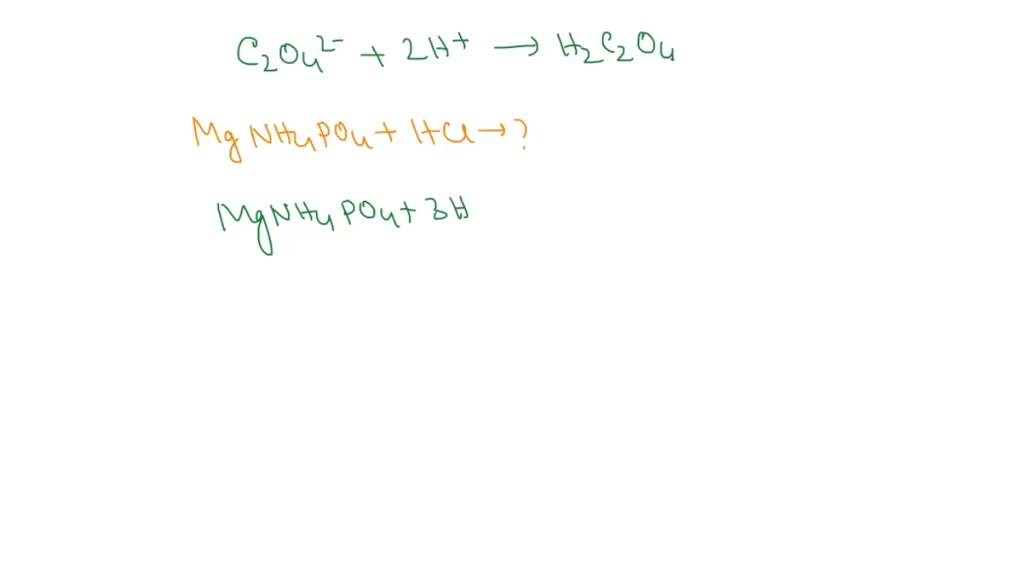 C₂O₄²⁻ + 2H⁺ → H₂C₂O₄
MgNH₄PO₄ + HCl → ?
MgNH₄PO₄ + 3H